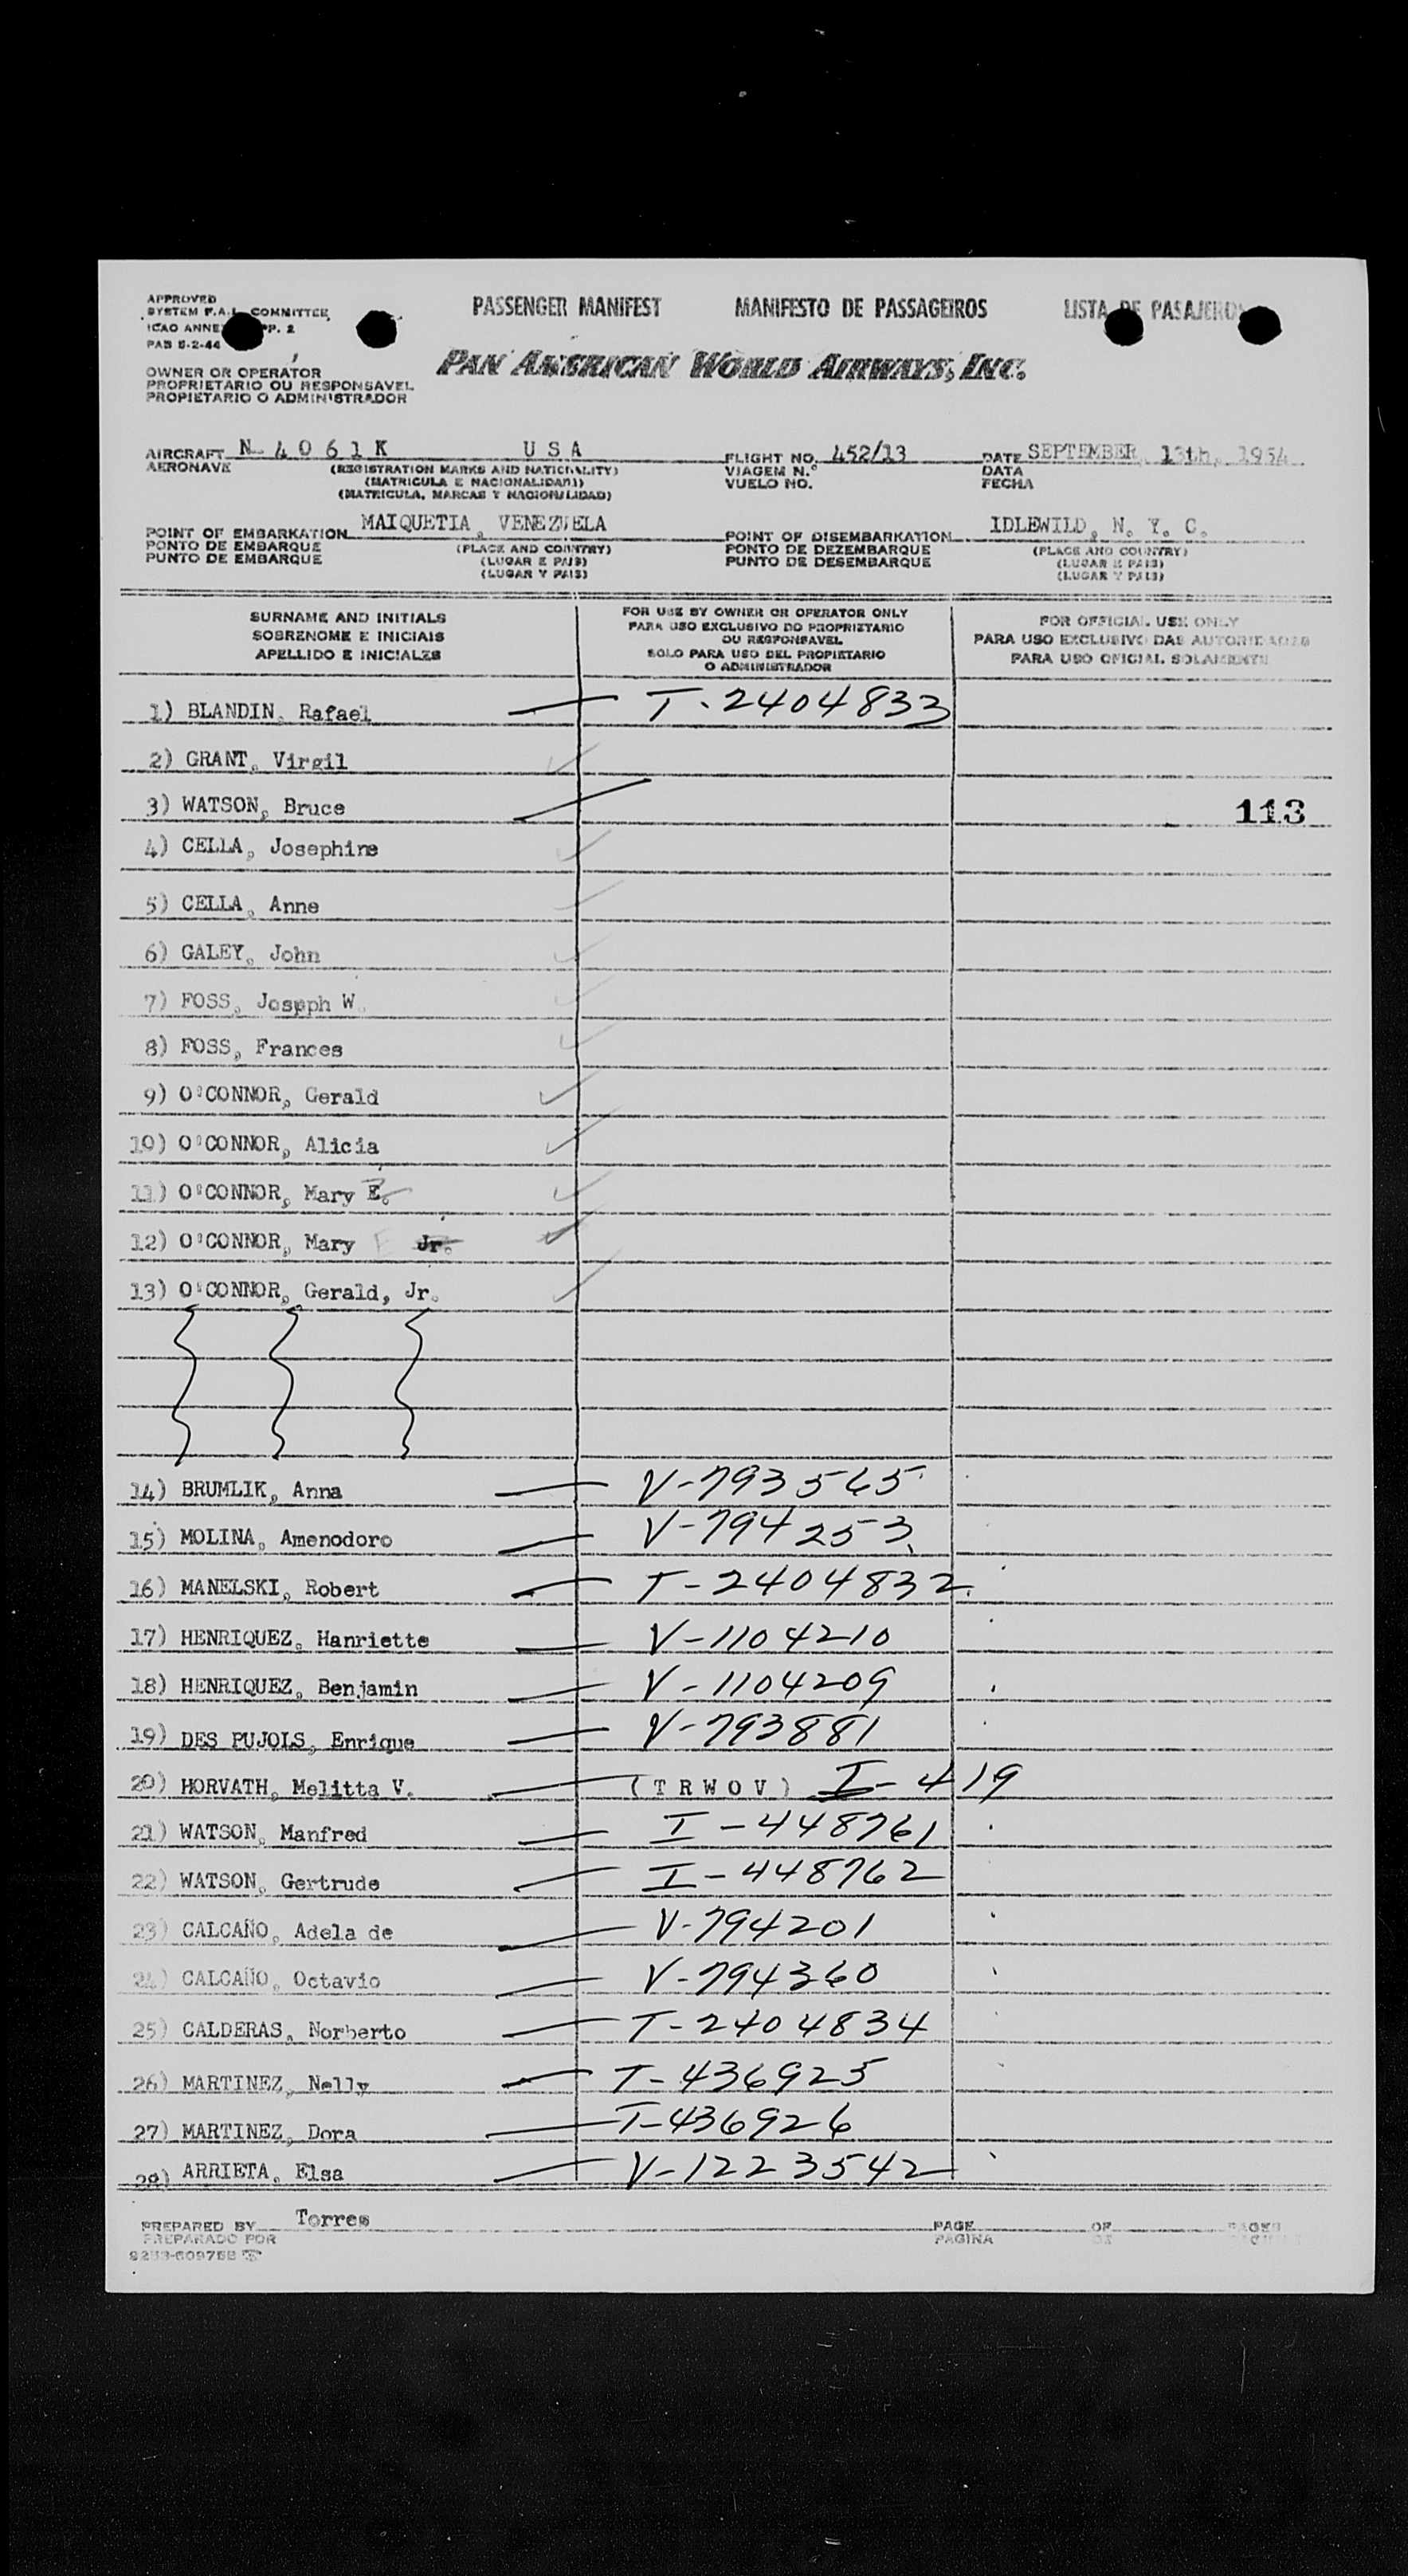 APPROVED
SYSTEM F.A.L. COMMITTEE
ICAO ANNEX PP. 2
PAB 5-2-44
PASSENGER MANIFEST MANIFESTO DE PASSAGEIROS LISTA DE PASAJEROS
PAN AMERICAN WORLD AIRWAYS, INC.
OWNER OR OPERATOR
PROPRIETARIO OU RESPONSAVEL
PROPIETARIO O ADMINISTRADOR
AIRCRAFT N 4061K USA FLIGHT NO. 452/13 DATE SEPTEMBER, 13th, 1954
AERONAVE (REGISTRATION MARKS AND NATIONALITY) VIAGEM N.º DATA
(MATRICULA E NACIONALIDAD) VUELO NO. FECHA
(MATRICULA, MARCAS Y NACIONALIDAD)
POINT OF EMBARKATION MAIQUETIA, VENEZUELA POINT OF DISEMBARKATION IDLEWILD, N. Y. C.
PONTO DE EMBARQUE (PLACE AND COUNTRY) PONTO DE DEZEMBARQUE (PLACE AND COUNTRY)
PUNTO DE EMBARQUE (LUGAR E PAIS) PUNTO DE DESEMBARQUE (LUGAR E PAIS)
(LUGAR Y PAIS) (LUGAR Y PAIS)
SURNAME AND INITIALS FOR USE BY OWNER OR OPERATOR ONLY FOR OFFICIAL USE ONLY
SOBRENOME E INICIAIS PARA USO EXCLUSIVO DO PROPRIETARIO OU RESPONSAVEL PARA USO EXCLUSIVO DAS AUTORIDADES
APELLIDO E INICIALES SOLO PARA USO DEL PROPIETARIO O ADMINISTRADOR PARA USO OFICIAL SOLAMENTE
1) BLANDIN, Rafael T-2404833
2) GRANT, Virgil
3) WATSON, Bruce 113
4) CELLA, Josephine
5) CELLA, Anne
6) GALEY, John
7) FOSS, Joseph W.
8) FOSS, Frances
9) O'CONNOR, Gerald
10) O'CONNOR, Alicia
11) O'CONNOR, Mary E.
12) O'CONNOR, Mary E Jr.
13) O'CONNOR, Gerald, Jr.
14) BRUMLIK, Anna V-793565
15) MOLINA, Amenodoro V-794253
16) MANELSKI, Robert T-2404832
17) HENRIQUEZ, Hanriette V-1104210
18) HENRIQUEZ, Benjamin V-1104209
19) DES PUJOLS, Enrique V-793881
20) HORVATH, Melitta V. (TRWOV) I-419
21) WATSON, Manfred I-448761
22) WATSON, Gertrude I-448762
23) CALCAÑO, Adela de V-794201
24) CALCAÑO, Octavio V-794360
25) CALDERAS, Norberto T-2404834
26) MARTINEZ, Nelly T-436925
27) MARTINEZ, Dora T-436926
28) ARRIETA, Elsa V-1223542
PREPARED BY Torres PAGE OF PAGES
PREPARADO POR PAGINA DE